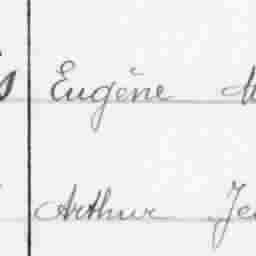 Eugène
Arthur Je